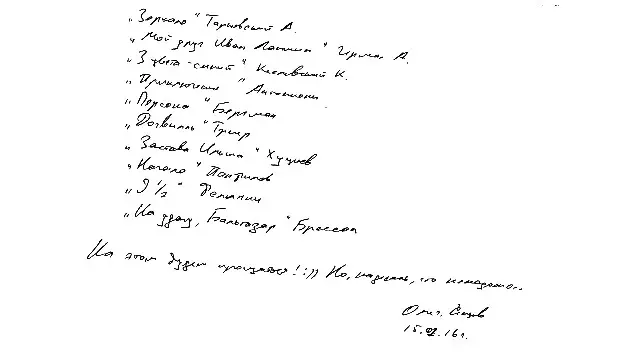 „Зеркало" Тарковский А.
„Мой друг Иван Лапшин" Герман А.
„3 цвета-синий" Кесьлевский К.
„Приключение" Антониони.
„Персона" Бергман
„Догвилль" Триер
„Застава Ильича" Хуциев
„Начало" Панфилов
„9 1/2" Феллини
„На удачу, Бальтазар" Брессон
На этом будем прощаться! :)) Но, надеюсь, что ненадолго..
Олег. Сенцов
15.02.16г.